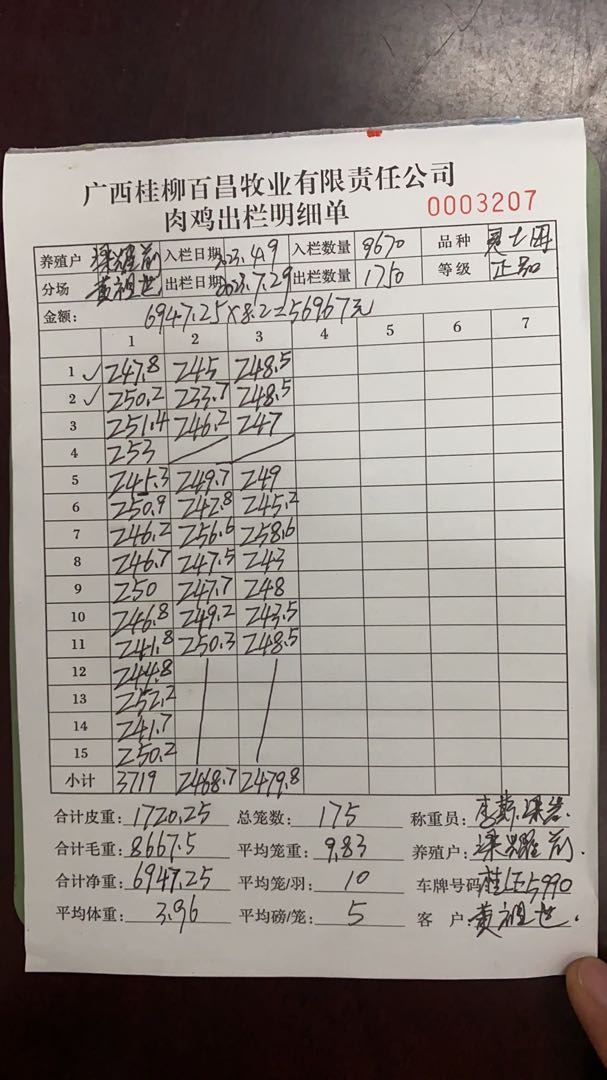 广西桂柳百昌牧业有限责任公司
肉鸡出栏明细单 0003207
养殖户 梁耀前 入栏日期 2023.4.9 入栏数量 9670 品种
分场 黄祖世 出栏日期 2023.7.29 出栏数量 1750 等级 正品
金额: 6947.25×8.2=56967元
1 2 3 4 5 6 7
1 ✓ 247.8 245 248.5
2 ✓ 250.2 233.7 248.5
3 251.4 246.2 247
4 253
5 245.3 249.7 249
6 250.9 242.8 245.2
7 246.2 256.6 258.6
8 246.7 247.5 243
9 250 247.7 248
10 246.8 249.2 243.5
11 241.8 250.3 248.5
12 244.8
13 252.2
14 241.7
15 250.2
小计 3719 2468.7 2479.8
合计皮重: 1720.25 总笼数: 175 称重员:
合计毛重: 8667.5 平均笼重: 9.83 养殖户: 梁耀前
合计净重: 6947.25 平均笼/羽: 10 车牌号码
平均体重: 3.96 平均磅/笼: 5 客 户: 黄祖世.